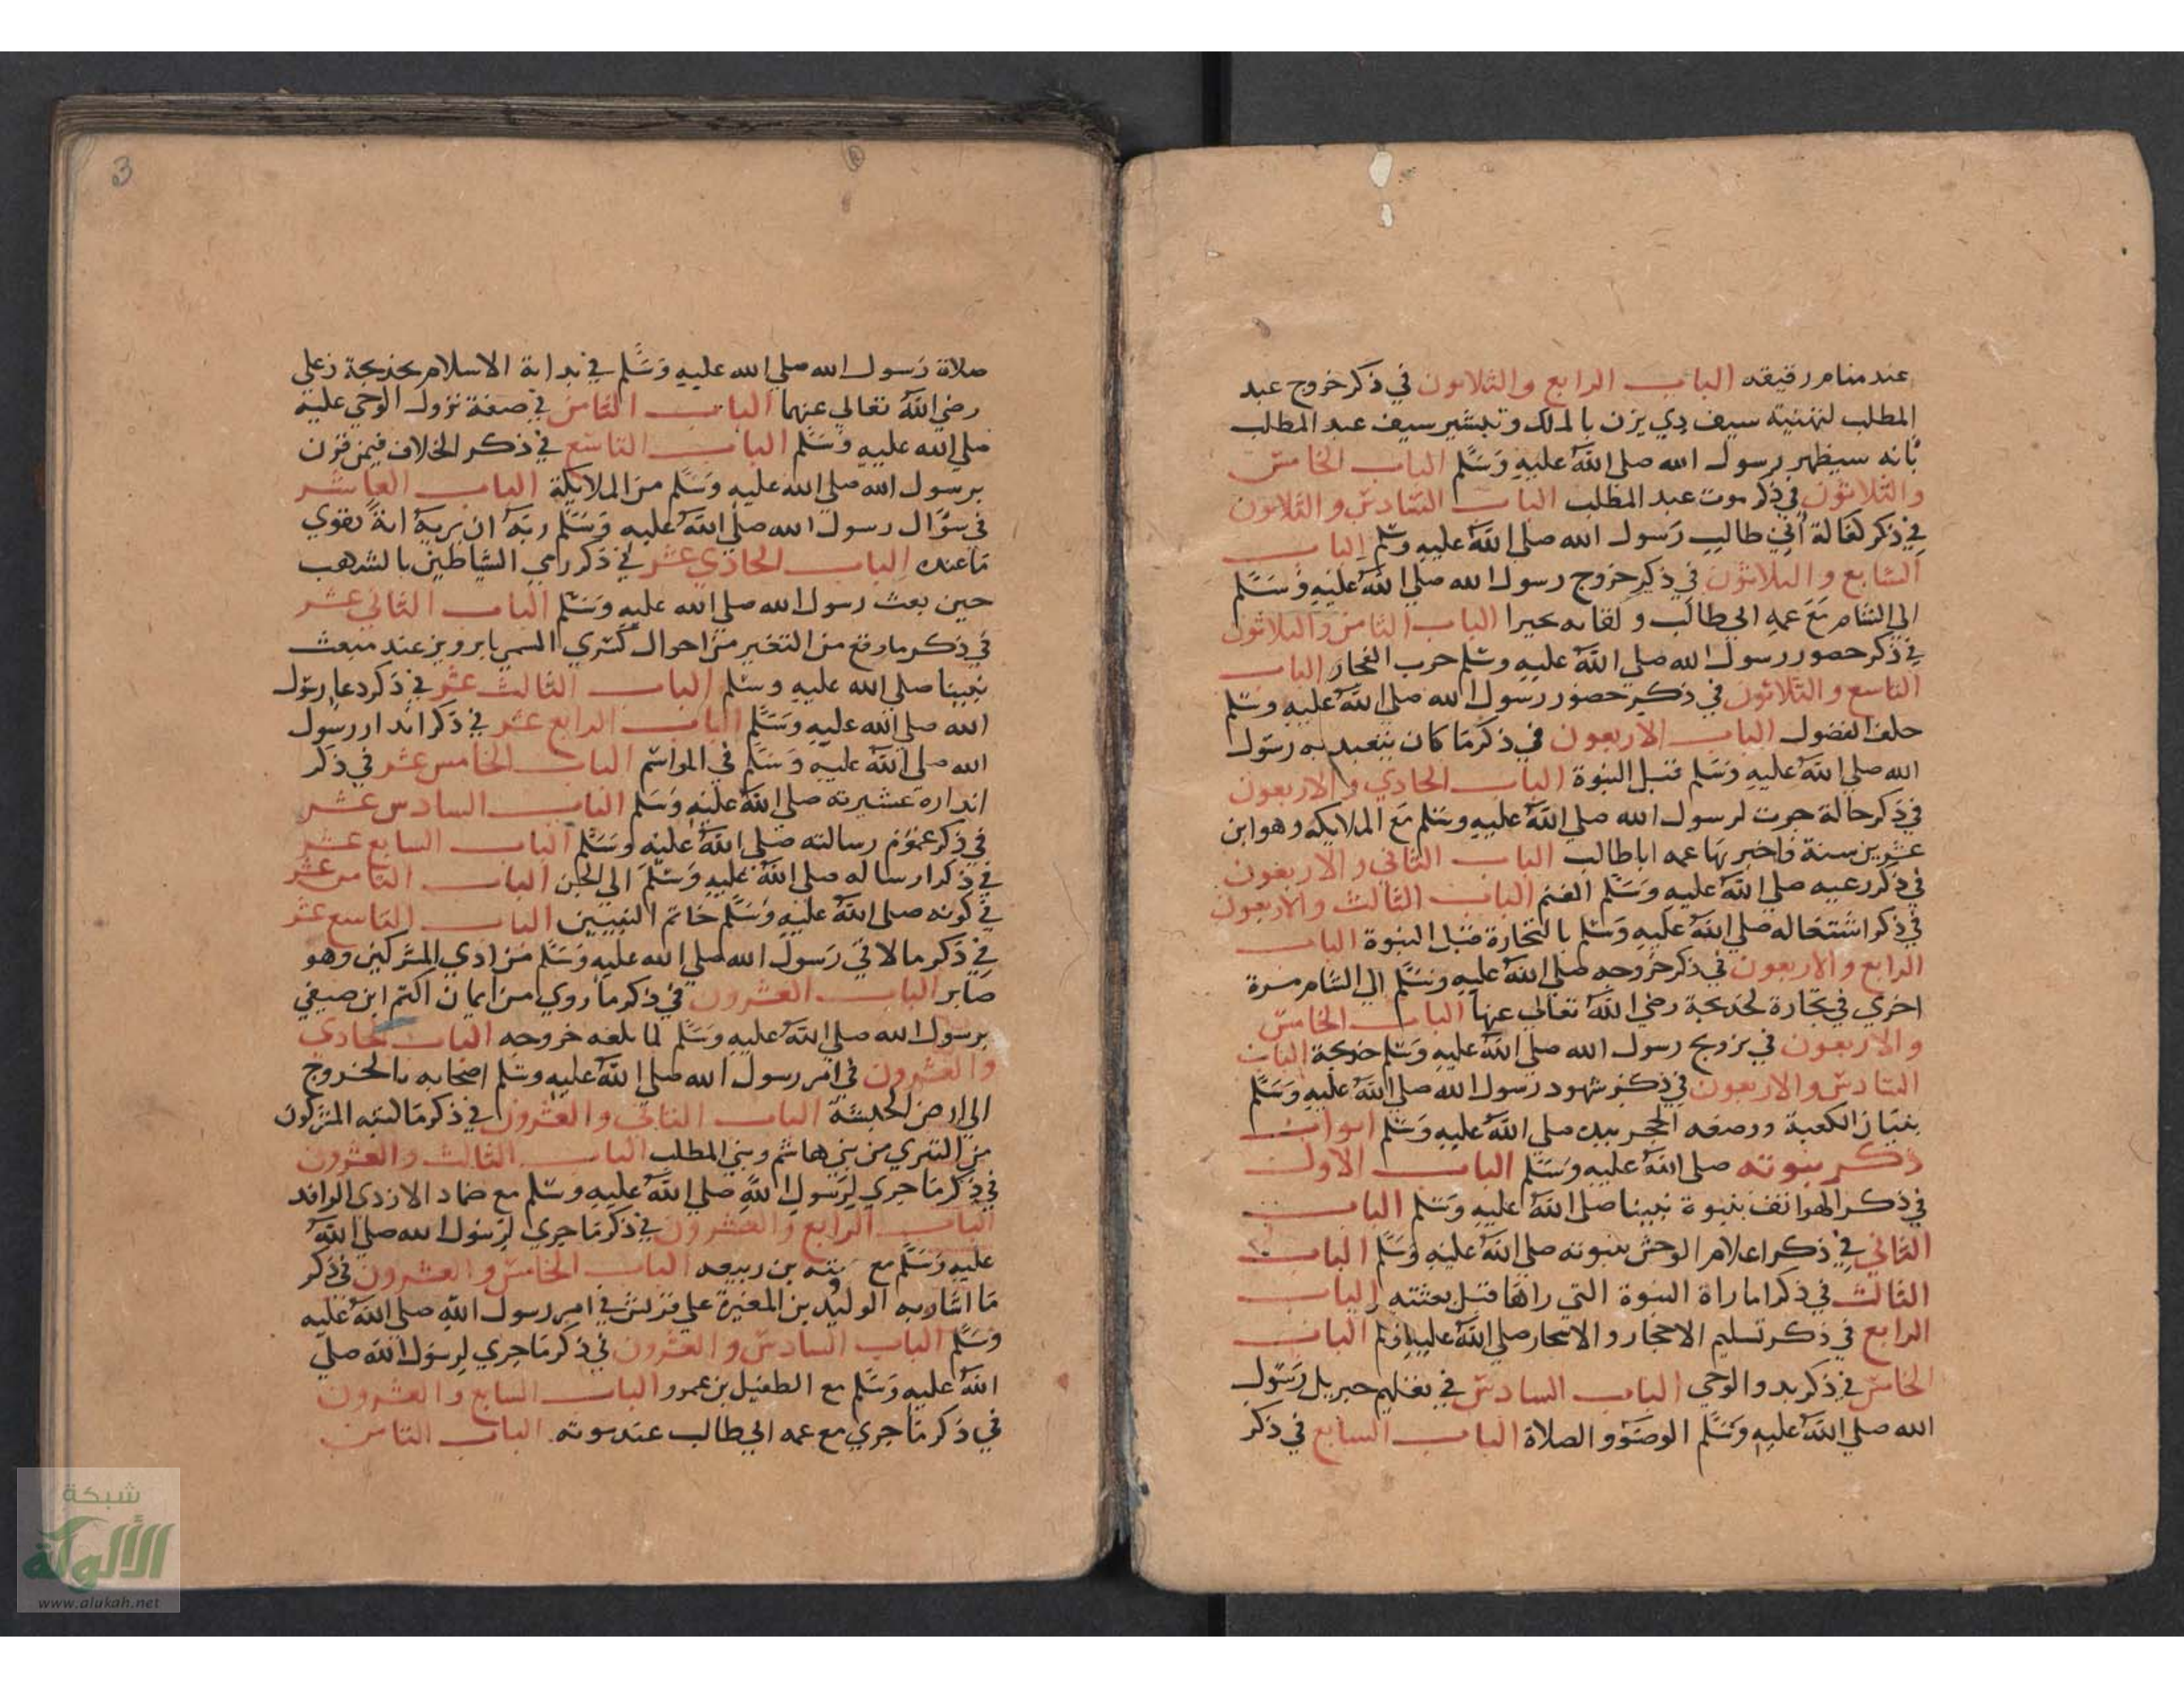 عند منام رقيقه الباب الرابع والثلاثون في ذكر خروج عبد
المطلب لتهنية سيف ذي يزن بالملك وتبشير سيف عبد المطلب
بأنه سيظهر رسول الله صلى الله عليه وسلم الباب الخامس
والثلاثون في ذكر موت عبد المطلب الباب السادس والثلاثون
في ذكر كفالة أبي طالب رسول الله صلى الله عليه وسلم الباب
السابع والثلاثون في ذكر خروج رسول الله صلى الله عليه وسلم
الي الشام مع عمه ابي طالب ولقايه بحيرا الباب الثامن والثلاثون
في ذكر حضور رسول الله صلي الله عليه وسلم حرب الفجار الباب
التاسع والثلاثون في ذكر حضور رسول الله صلي الله عليه وسلم
حلف الفضول الباب الاربعون في ذكر ما كان يتعبد به رسول
الله صلي الله عليه وسلم قبل النبوة الباب الحادي والاربعون
في ذكر حالة جرت لرسول الله صلي الله عليه وسلم مع الملايكه وهو ابن
عشرين سنة فاخبر بها عمه ابا طالب الباب الثاني والاربعون
في ذكر رعيه صلي الله عليه وسلم الغنم الباب الثالث والاربعون
في ذكر اشتغاله صلي الله عليه وسلم بالتجارة قبل النبوة الباب
الرابع والاربعون في ذكر خروجه صلي الله عليه وسلم الي الشام مرة
اخري في تجارة لخديجة رضي الله تعالي عنها الباب الخامس
والاربعون في تزويج رسول الله صلي الله عليه وسلم خديجة الباب
السادس والاربعون في ذكر شهود رسول الله صلي الله عليه وسلم
بنيان الكعبة ووضعه الحجر بيده صلي الله عليه وسلم ابواب
ذكر نبوته صلي الله عليه وسلم الباب الاول
في ذكر الهواتف بنبوة نبينا صلي الله عليه وسلم الباب
الثاني في ذكر اعلام الوحش بنبوته صلي الله عليه وسلم الباب
الثالث في ذكر اماراة النبوة التي راها قبل بعثته الباب
الرابع في ذكر تسليم الاحجار والاشجار صلي الله عليه وسلم الباب
الخامس في ذكر بدو الوحي الباب السادس في تعليم جبريل رسول
الله صلي الله عليه وسلم الوضوء والصلاة الباب السابع في ذكر
3
صلاة رسول الله صلي الله عليه وسلم في بداية الاسلام بخديجة وعلي
رضي الله تعالي عنهما الباب الثامن في صفة نزول الوحي عليه
صلي الله عليه وسلم الباب التاسع في ذكر الخلاف فيمن قرن
برسول الله صلي الله عليه وسلم من الملايكة الباب العاشر
في سؤال رسول الله صلي الله عليه وسلم ربه ان يريه اية تقوي
ما عنده الباب الحادي عشر في ذكر رمي الشياطين بالشهب
حين بعث رسول الله صلي الله عليه وسلم الباب الثاني عشر
في ذكر ما وقع من التغير من احوال كسري المسمي ابرويز عند مبعث
نبينا صلي الله عليه وسلم الباب الثالث عشر في ذكر دعا رسول
الله صلي الله عليه وسلم الباب الرابع عشر في ذكر اندار رسول
الله صلي الله عليه وسلم في المواسم الباب الخامس عشر في ذكر
انداره عشيرته صلي الله عليه وسلم الباب السادس عشر
في ذكر عموم رسالته صلي الله عليه وسلم الباب السابع عشر
في ذكر ارساله صلي الله عليه وسلم الي الجن الباب الثامن عشر
في كونه صلي الله عليه وسلم خاتم النبيين الباب التاسع عشر
في ذكر ما لاقي رسول الله صلي الله عليه وسلم من ادي المشركين وهو
صابر الباب العشرون في ذكر ما روي من ايمان اكثم ابن صيفي
برسول الله صلي الله عليه وسلم لما بلغه خروجه الباب الحادي
والعشرون في امر رسول الله صلي الله عليه وسلم اصحابه بالخروج
الي ارض الحبشة الباب الثاني والعشرون في ذكر ما كتبه المشركون
من التبري من بني هاشم وبني المطلب الباب الثالث والعشرون
في ذكر ما جري لرسول الله صلي الله عليه وسلم مع ضماد الازدي الوافد
الباب الرابع والعشرون في ذكر ما جري لرسول الله صلي الله
عليه وسلم مع عتبه بن ربيعه الباب الخامس والعشرون في ذكر
ما اشار به الوليد بن المغيرة علي قريش في امر رسول الله صلي الله عليه
وسلم الباب السادس والعشرون في ذكر ما جري لرسول الله صلي
الله عليه وسلم مع الطفيل بن عمرو الباب السابع والعشرون
في ذكر ما جري مع عمه ابي طالب عند موته الباب الثامن
شبكة
الألوكة
www.alukah.net